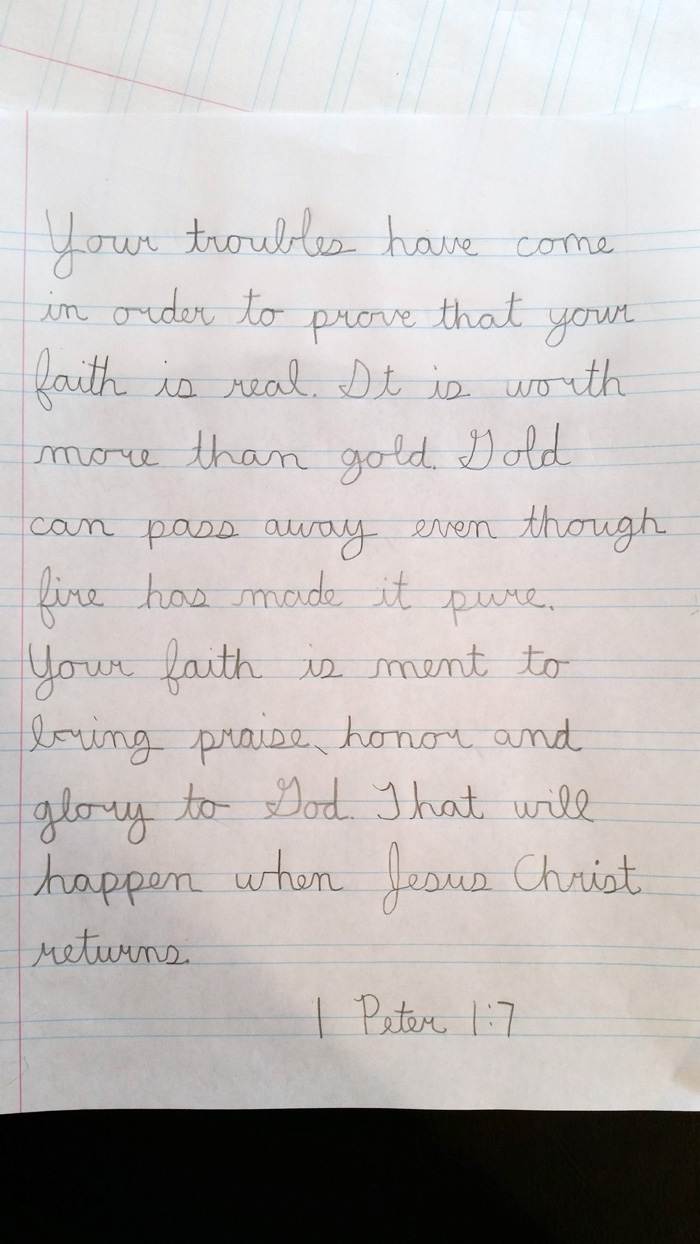 Your troubles have come
in order to prove that your
faith is real. It is worth
more than gold. Gold
can pass away even though
fire has made it pure.
Your faith is ment to
bring praise, honor and
glory to God. That will
happen when Jesus Christ
returns.
1 Peter 1:7